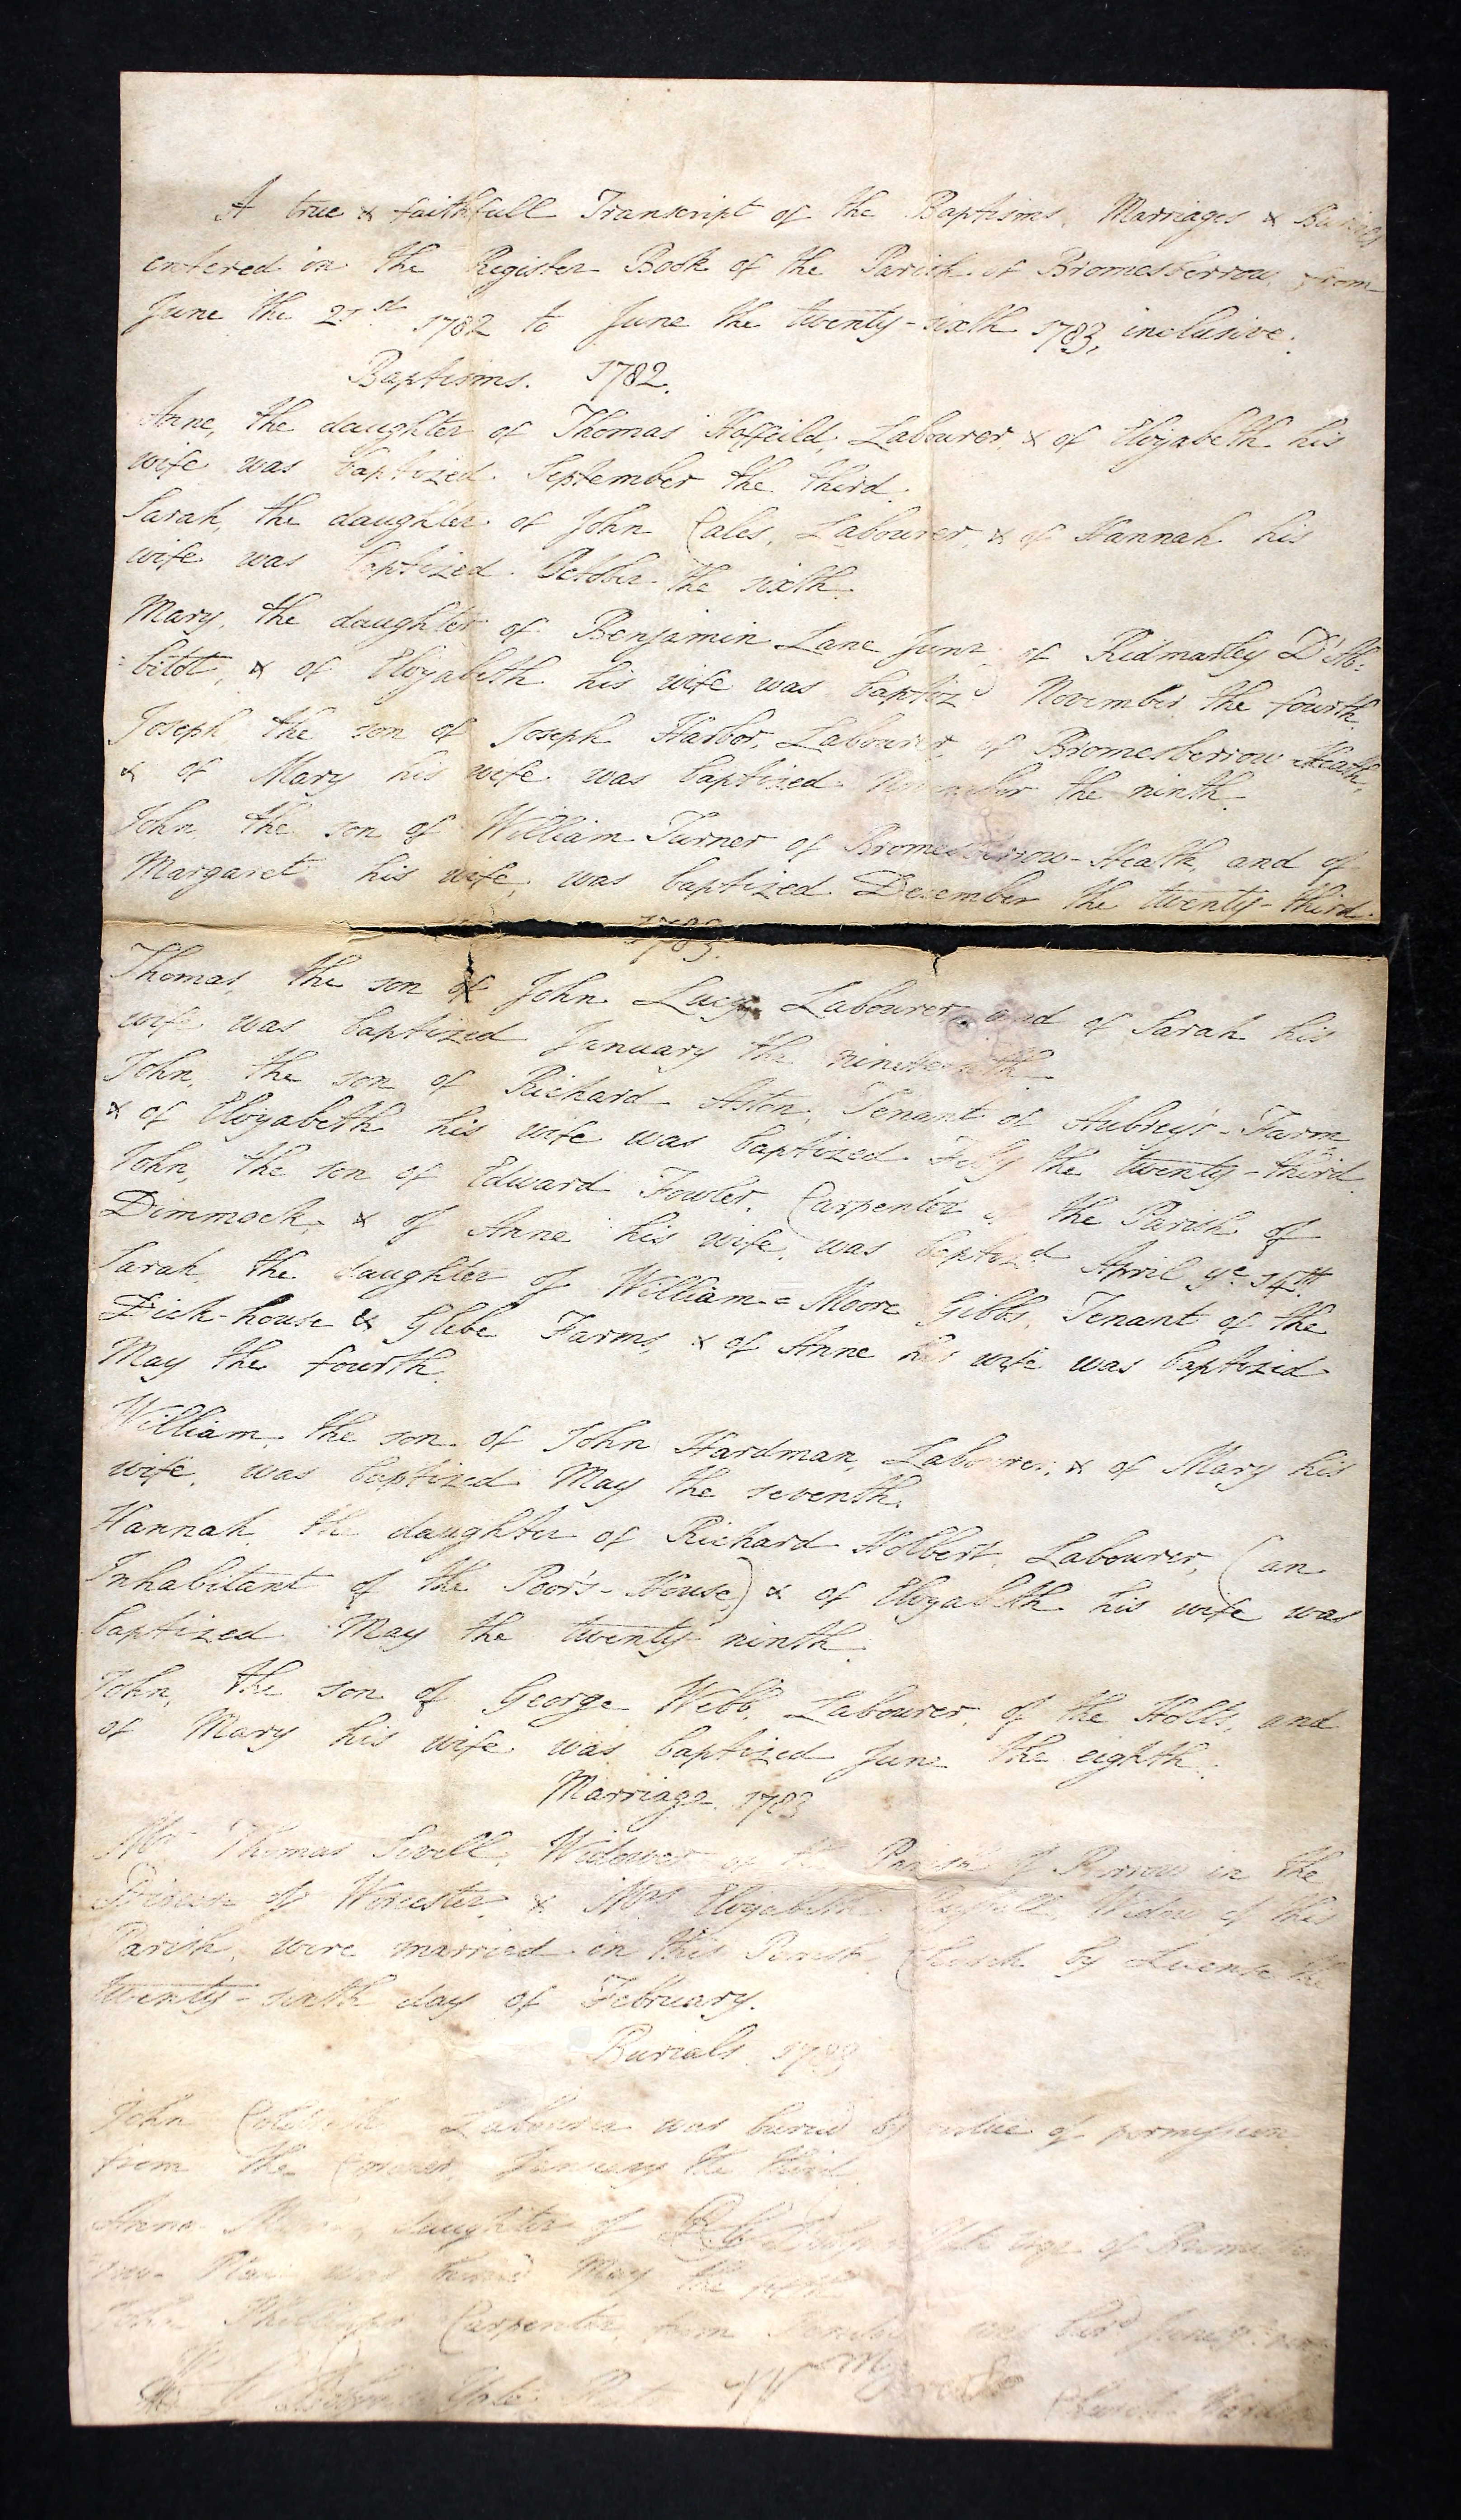 A true & faithfull Transcript of the Baptisms, Marriages & Burials
entered in the Register Book of the Parish of Bromesberrow, from
June the 21st 1782 to June the twenty-sixth 1783, inclusive.
Baptisms. 1782.
Anne, the daughter of Thomas Hoffeild, Labourer, & of Elizabeth his
wife was baptized September the third.
Sarah, the daughter of John Cales, Labourer, & of Hannah his
wife was baptized October the sixth.
Mary, the daughter of Benjamin Lane Junr, of Ridmarley D'Ab:
:bitot, & of Elizabeth his wife was baptizd November the fourth.
Joseph the son of Joseph Harbor, Labourer, of Bromesberrow Heath,
& of Mary his wife was baptized November the ninth.
John the son of William Turner of Bromesberrow-Heath, and of
Margaret his wife, was baptized December the twenty-third.
1783.
Thomas, the son of John Lucy, Labourer, and of Sarah his
wife was baptized January the nineteenth
John, the son of Richard Aston, Tenant of Aubrey's-Farm
& of Elizabeth his wife was baptized Feby the twenty-third.
John, the son of Edward Fowler, Carpenter of the Parish of
Dimmock, & of Anne his wife, was baptizd April ye 14th.
Sarah, the daughter of William=Moore Gibbs, Tenant of the
-house & Glebe Farms, & of Anne his wife was baptized
May the fourth.
William, the son of John Hardman, Labourer, & of Mary his
wife, was baptized May the seventh.
Hannah, the daughter of Richard Holbert, Labourer, (an
Inhabitant of the Poor's-House) & of Elizabeth his wife was
baptized May the twenty-ninth.
John, the son of George Webb, Labourer, of the Holts, and
of Mary his wife was baptized June the eighth.
Marriage 1783
Mr Thomas Sivell, Widower of the Parish of Berrow in the
of Worcester, & Mrs Elizabeth Widow of this
Parish, were married in this Parish Church by Licence the
twenty-sixth day of February.
Burials 1783
John Labourer was buried by virtue of permission
from the Coroner, January the third.
Anne daughter of of
Place was buried May the
John Phillips Carpenter, from was burd June
Church Warden